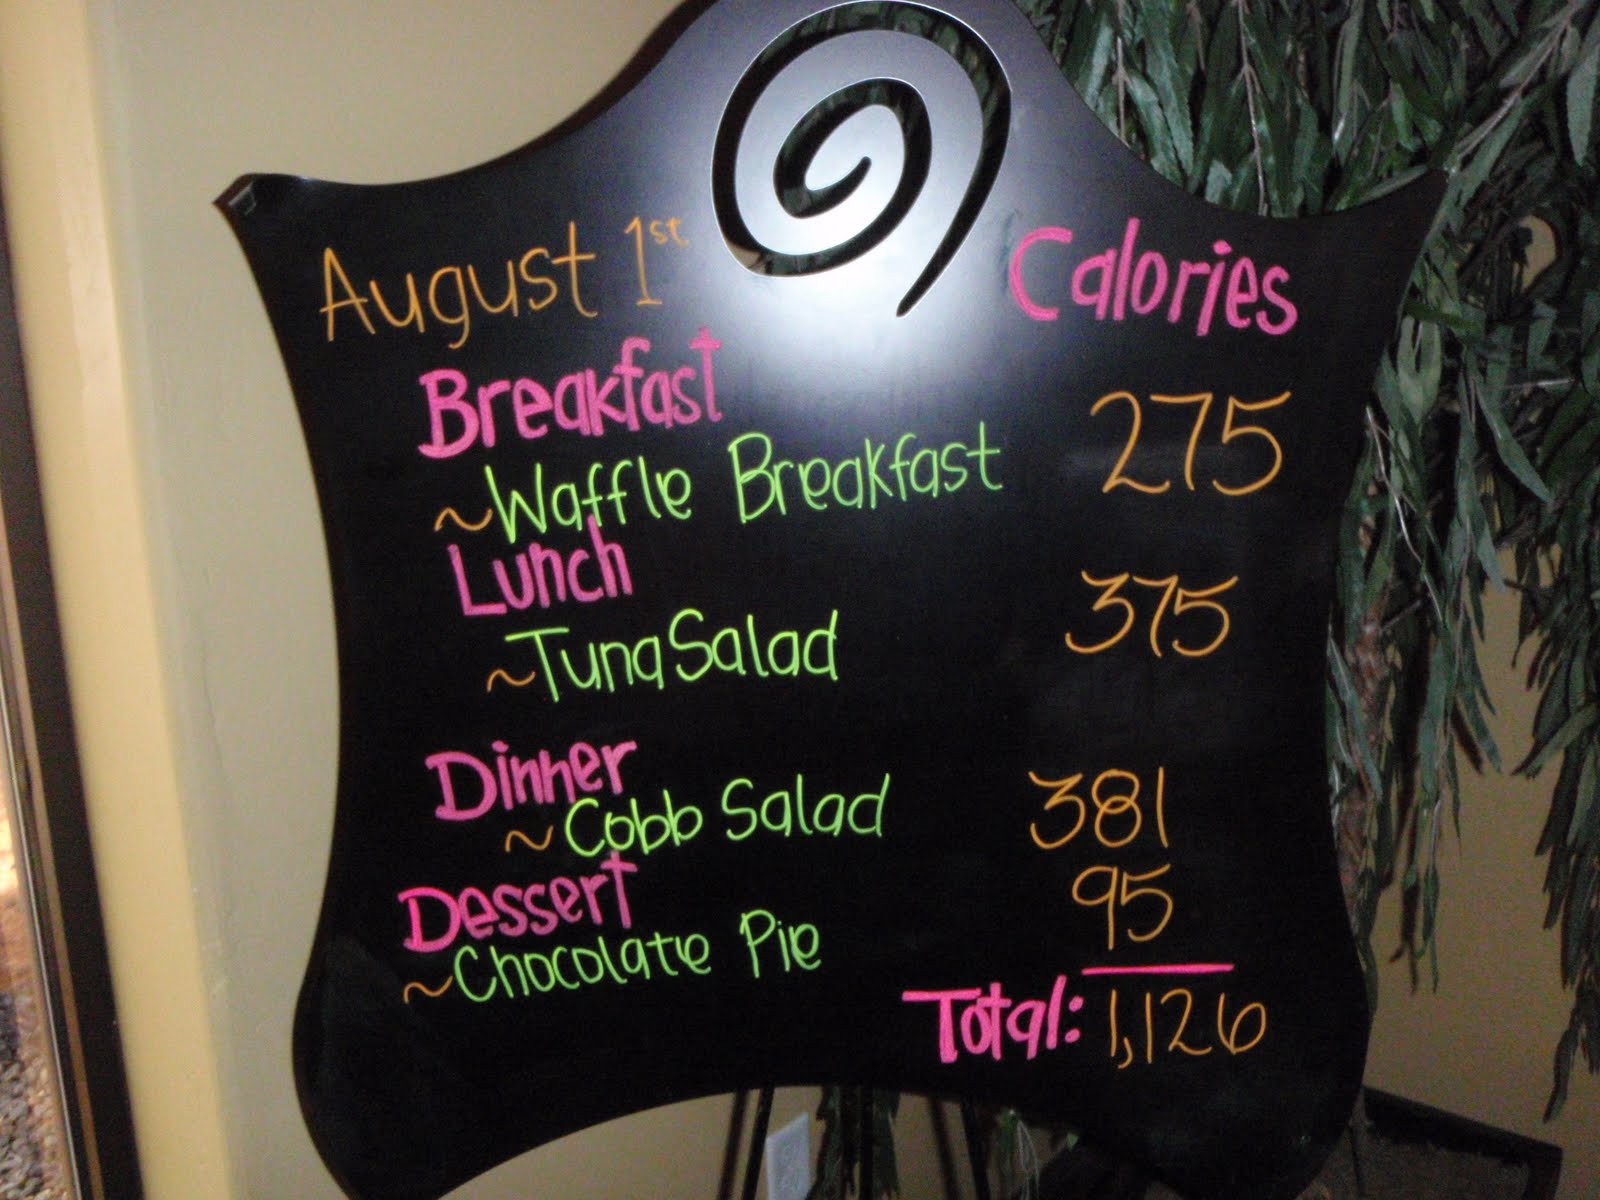 August 1st Calories
Breakfast
~Waffle Breakfast 275
Lunch
~Tuna Salad 375
Dinner
~Cobb Salad 381
Dessert 95
~Chocolate Pie
Total: 1,126